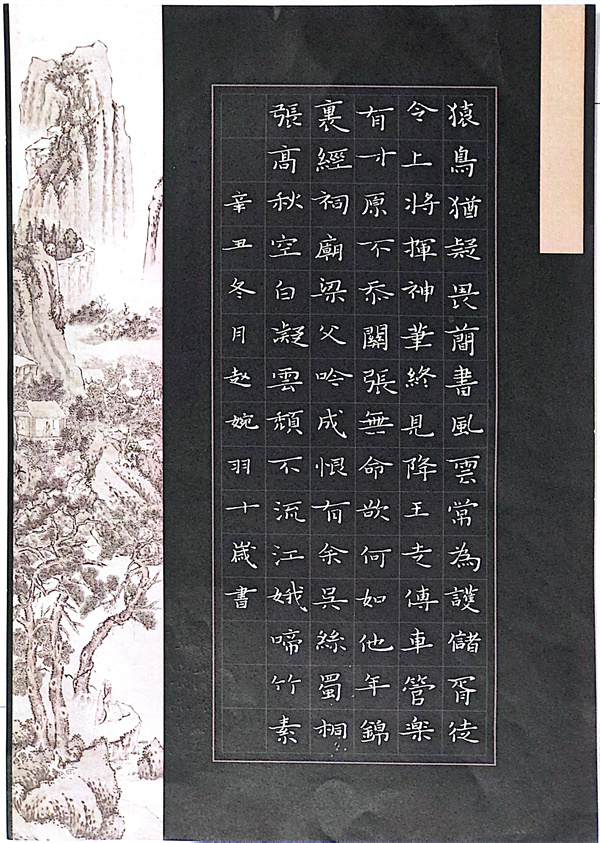 猿鳥猶疑畏蕳書風雲常為護儲胥徒
令上將揮神筆終見降王走傳車管楽
有才原不忝關張無命欲何如他年錦
裏經祠廟梁父吟成恨有余吳絲蜀桐
張髙秋空白凝雲頹不流江娥啼竹素
辛丑冬月赵婉羽十歲書